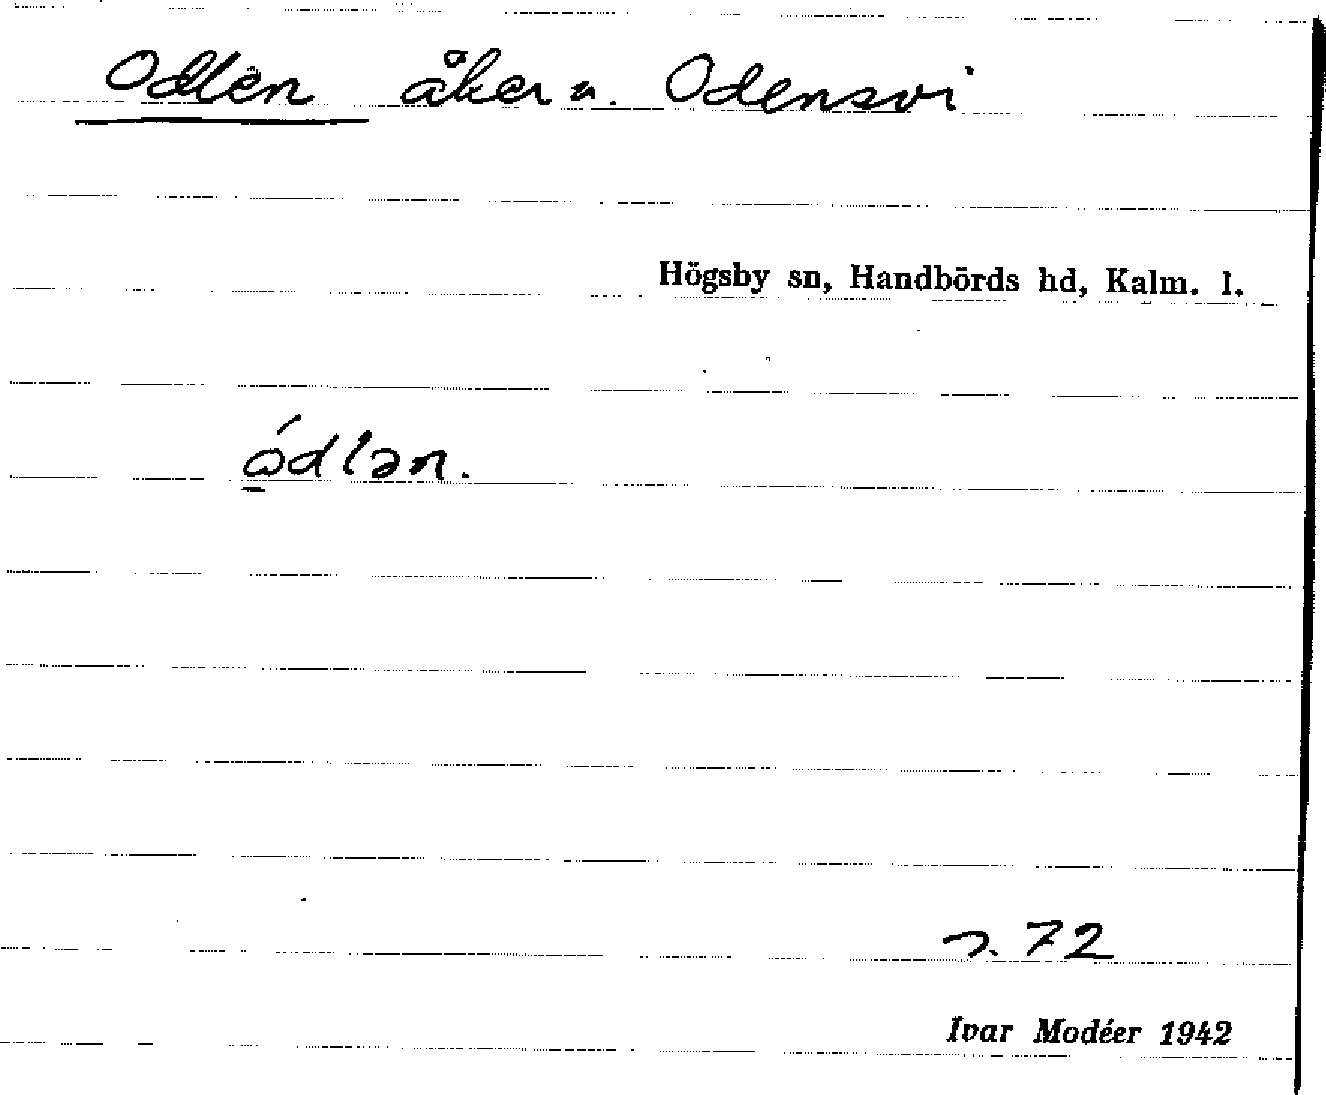 Odlen åker u. Odensvi
Högsby sn, Handbörds hd, Kalm. l.
ódlən.
s. 72
Ivar Modéer 1942